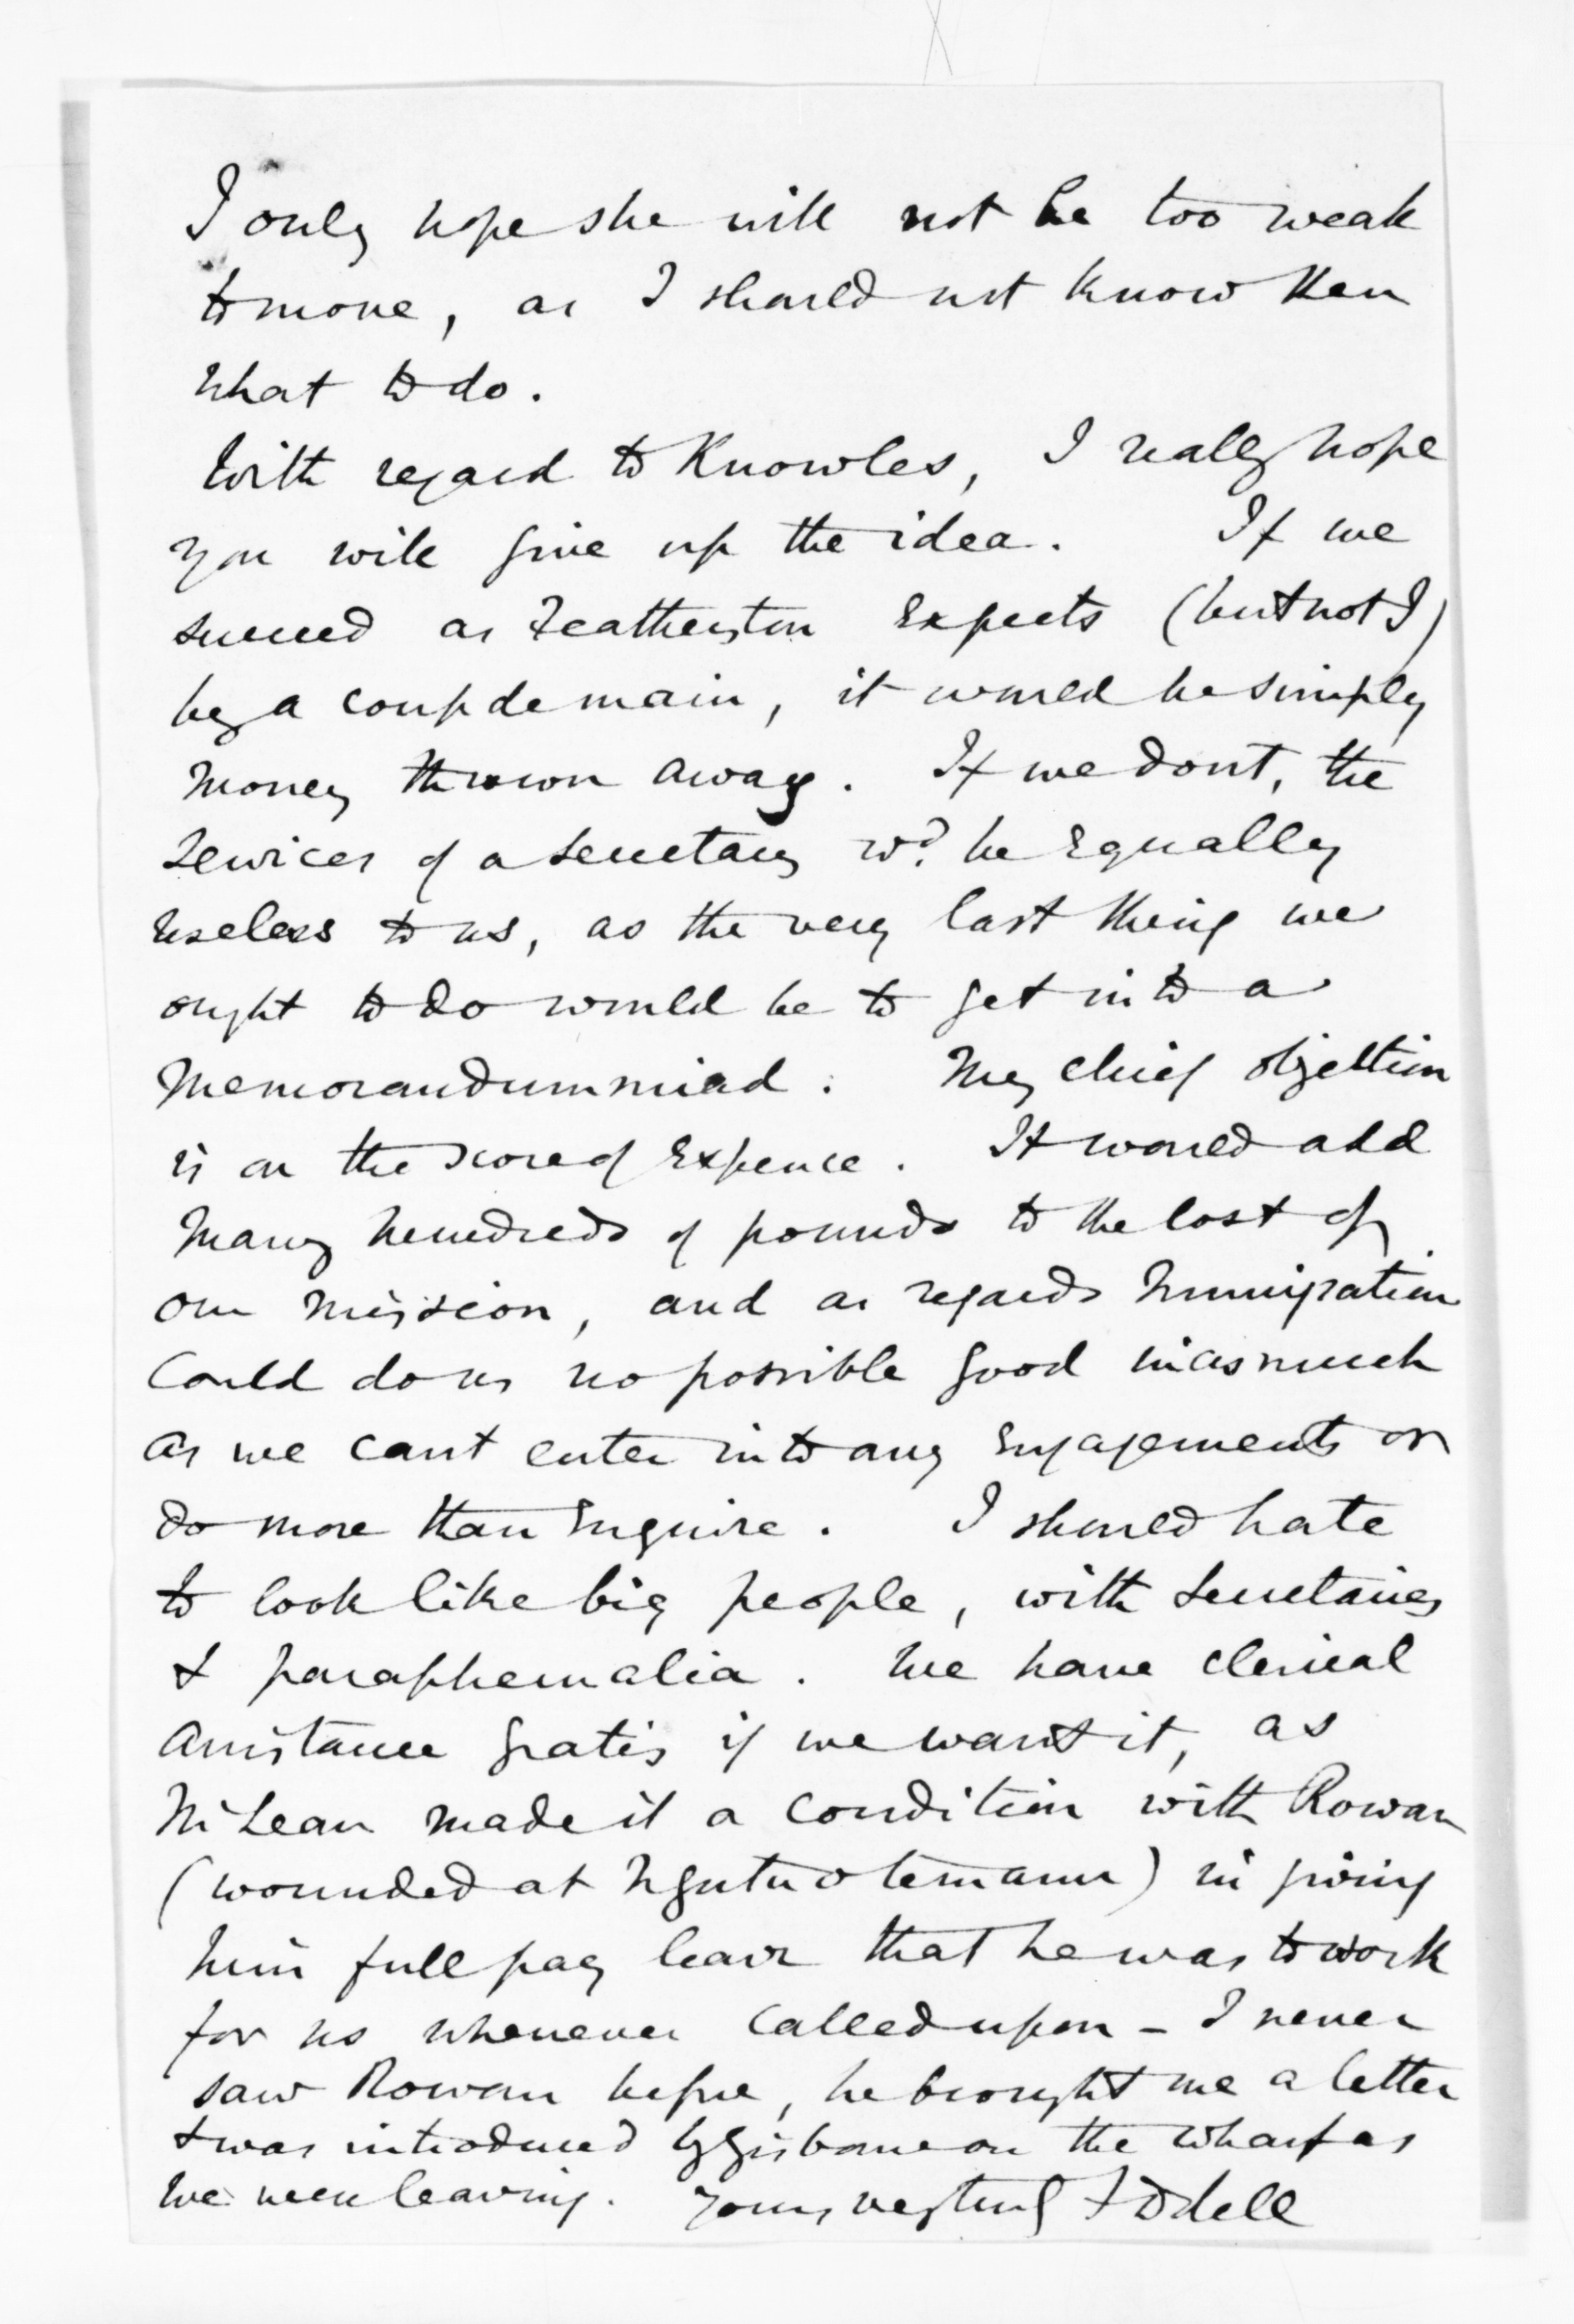 I only hope she will not be too weak
to move, as I should not know then
what to do.
With regard to Knowles, I really hope
you will give up the idea. If we
succeed as Featherston expects (but not I)
by a coup de main, it would be simply
money thrown away. If we dont, the
services of a Secretary wd. be equally
useless to us, as the very last thing we
ought to do would be to get into a
Memorandummiad. My chief objection
is on the score of expence. It would add
many hundreds of pounds to the cost of
our mission, and as regards Immigration
could do us no possible good inasmuch
as we cant enter into any engagements or
do more than enquire. I should hate
to look like big people, with Secretaries
& paraphernalia. We have clerical
assistance gratis if we want it, as
McLean made it a condition with Rowan
(wounded at Ngutuotemanu) in giving
him full pay leave that he was to work
for us whenever called upon - I never
saw Rowan before, he brought me a letter
& was introduced by Gisborne on the wharf as
we were leaving. Yours very truly F D Bell